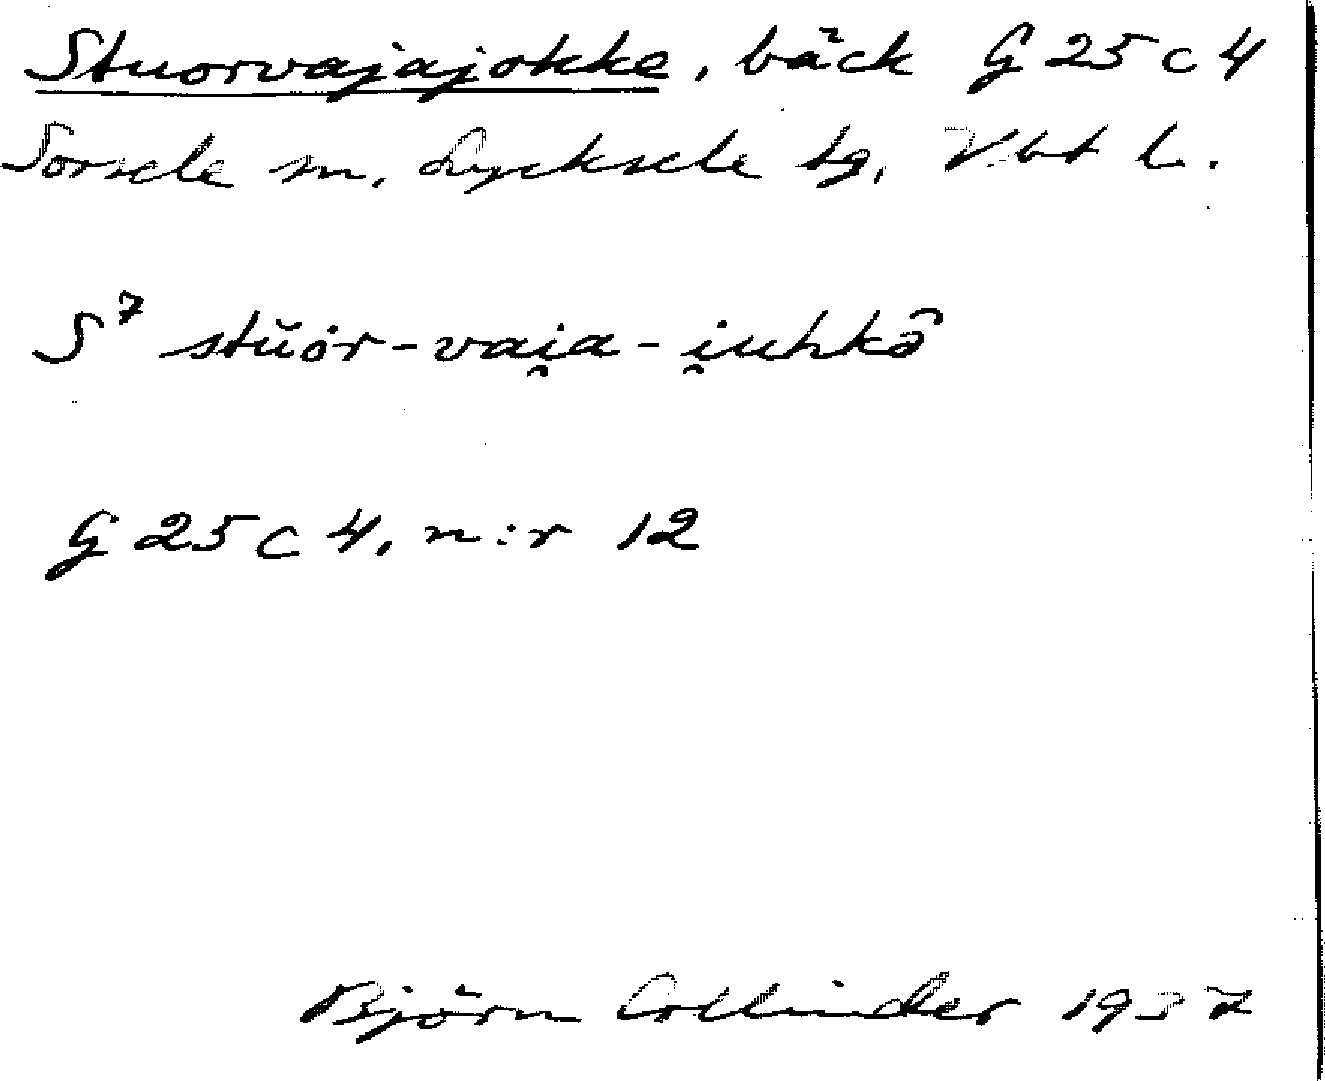 Stuorvajajokke, bäck G 25 c 4
Sorsele sn, Lycksele tg, Vbt l.
S⁷ stŭȯr-vai̯a-i̯uhkə̑
G 25 c 4, n:r 12
Björn Collinder 1937